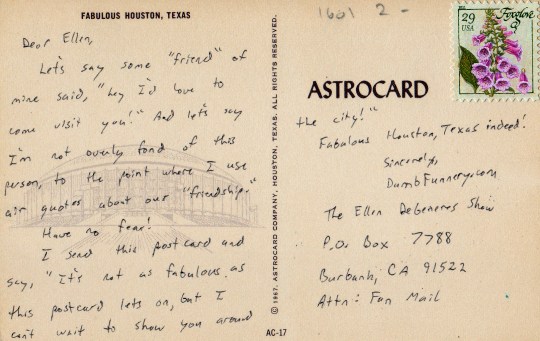 FABULOUS HOUSTON, TEXAS
Dear Ellen,
Let's say some "friend" of
mine said, "hey I'd love to
come visit you!" And let's say
I'm not overly fond of this
person, to the point where I use
air quotes about our "friendship."
Have no fear!
I send this postcard and
say, "It's not as fabulous as
this postcard lets on, but I
can't wait to show you around
© 1967. ASTROCARD COMPANY, HOUSTON, TEXAS. ALL RIGHTS RESERVED.
AC-17
1601 2-
29
USA
Foxglove
ASTROCARD
the city!"
Fabulous Houston, Texas indeed!
Sincerely,
DumbFunnery.com
The Ellen DeGeneres Show
P.O. Box 7788
Burbank, CA 91522
Attn: Fan Mail